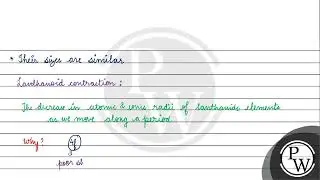 * Their sizes are similar
Lanthanoid contraction :
The decrease in atomic & ionic radii of lanthanide elements
as we move along a period.
Why? 4f
poor sh
P
W
P
W